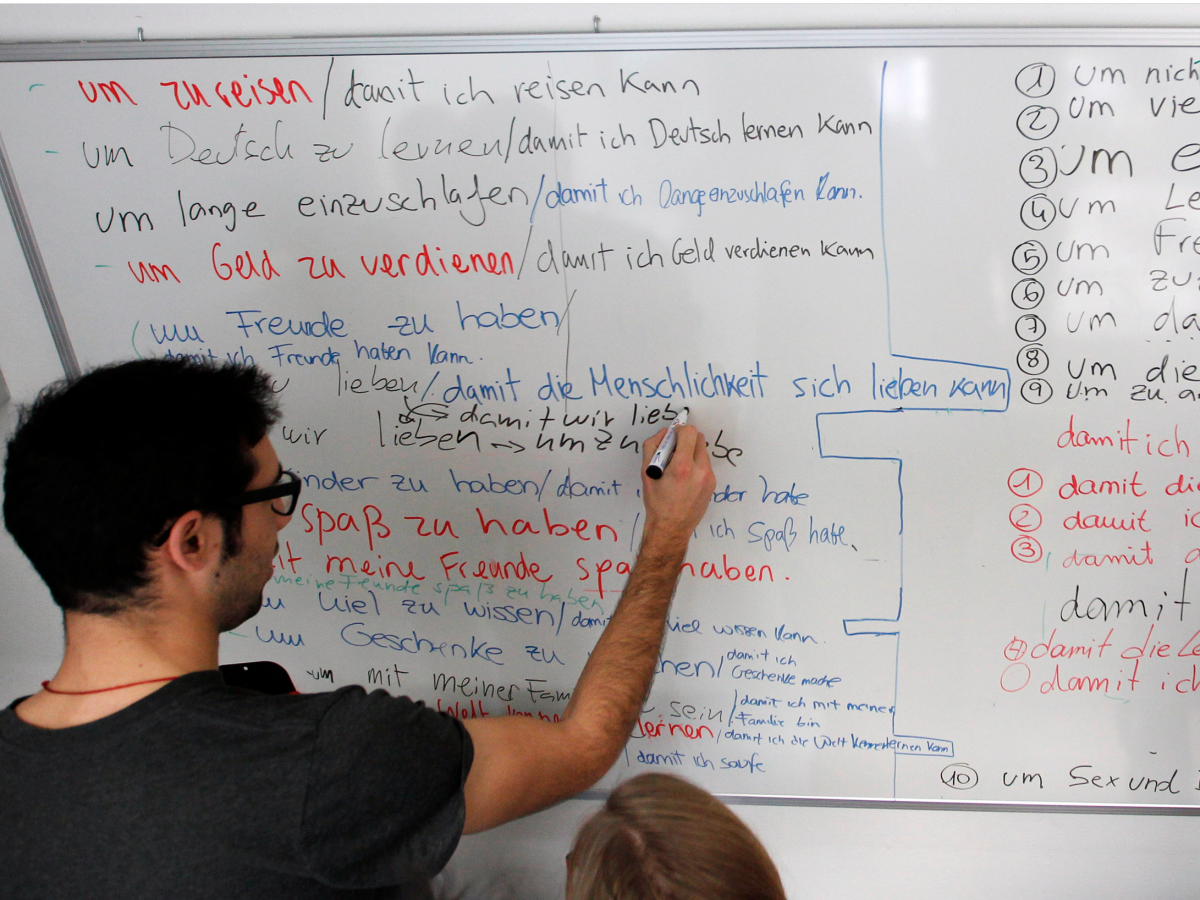 - um zu reisen/damit ich reisen kann
- um Deutsch zu lernen/damit ich Deutsch lernen kann
um lange einzuschlafen/damit ich
- um Geld zu verdienen/damit ich Geld verdienen kann
um Freunde zu haben/
damit ich Freunde haben kann.
lieben/damit die Menschlichkeit sich lieben kann
damit wir lieb
wir lieben → um zu
nder zu haben/damit der habe
spaß zu haben/ ich Spaß habe.
meine Freunde spa haben.
meine Freunde spaß zu haben
viel zu wissen/damit viel wissen kann.
um Geschenke zu chen/damit ich Geschenke mache
um mit meiner Fam sein/damit ich mit meiner Familie bin
Welt lernen/damit ich die Welt kennenlernen kann
/damit ich saufe
① um nich
② um vie
③ um e
④ um Le
⑤ um Fre
⑥ um zu
⑦ um da
⑧ um die
⑨ um zu a
damit ich
① damit die
② damit ic
③ damit d
damit
④ damit die Le
damit ich
⑩ um Sex und